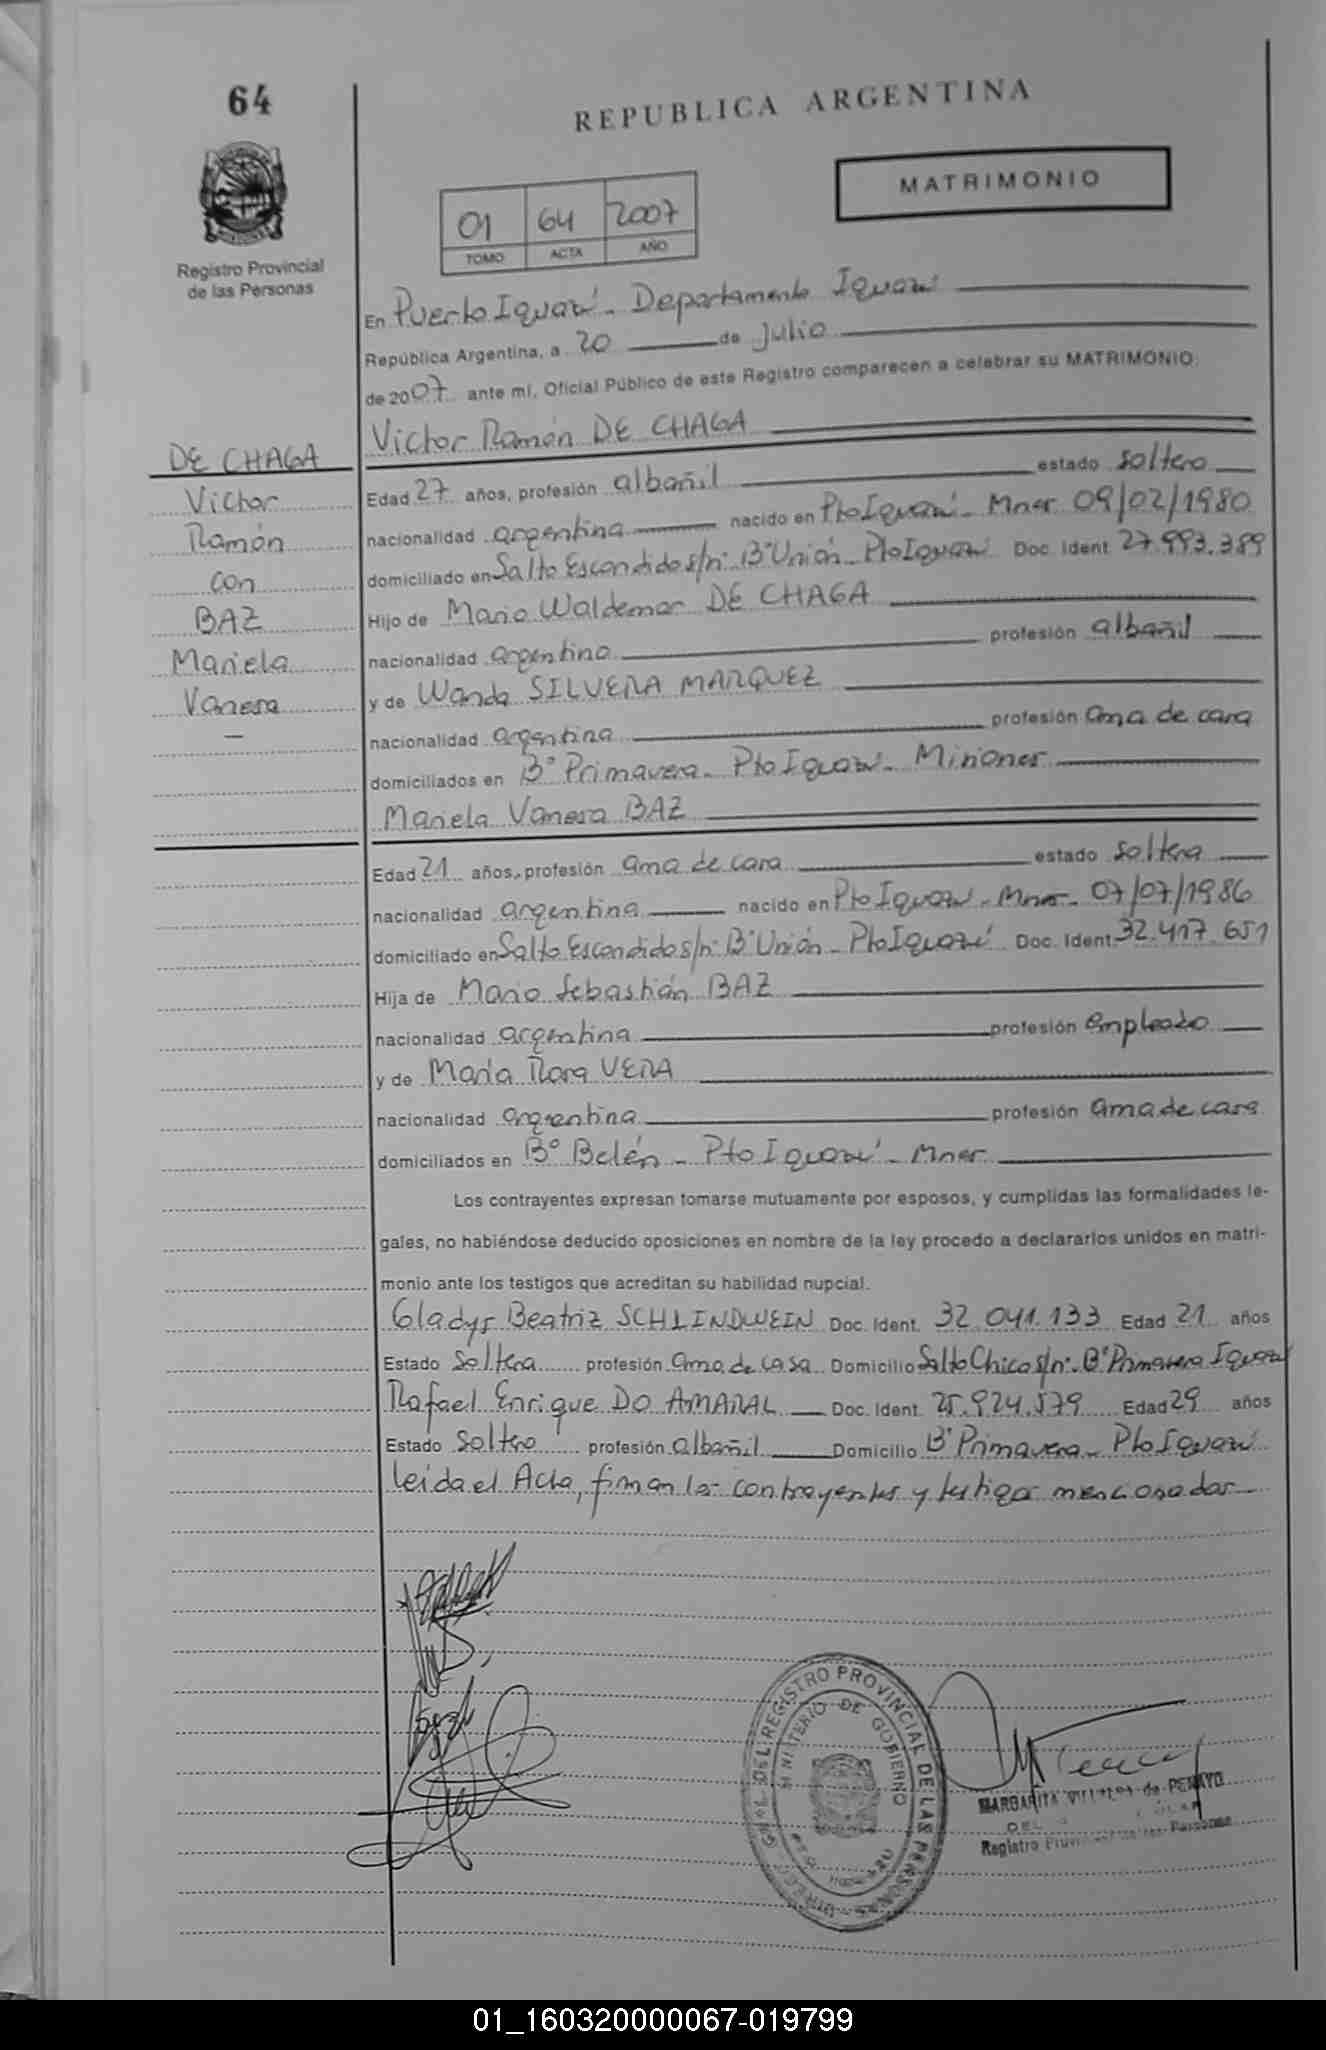 64
REPUBLICA ARGENTINA
MATRIMONIO
Registro Provincial
de las Personas
01 64 2007
TOMO ACTA AÑO
En Puerto Iguazú - Departamento Iguazú
República Argentina, a 20 de Julio
de 2007 ante mí, Oficial Público de este Registro comparecen a celebrar su MATRIMONIO:
DE CHAGA
Victor
Ramón
con
BAZ
Mariela
Vanesa
Victor Ramón DE CHAGA
Edad 27 años, profesión albañil estado soltero
nacionalidad argentina nacido en Pto Iguazú - Mnes 09/02/1980
domiciliado en Salto Escondido s/nº Bº Unión - Pto Iguazú Doc. Ident 27.993.389
Hijo de Mario Waldemar DE CHAGA
nacionalidad argentino profesión albañil
y de Wanda SILVERA MARQUEZ
nacionalidad argentina profesión ama de casa
domiciliados en Bº Primavera - Pto Iguazú - Misiones
Mariela Vanesa BAZ
Edad 21 años, profesión ama de casa estado soltera
nacionalidad argentina nacido en Pto Iguazú - Mnes - 07/07/1986
domiciliado en Salto Escondido s/nº Bº Unión - Pto Iguazú Doc. Ident. 32.417.651
Hija de Mario Sebastián BAZ
nacionalidad argentina profesión empleado
y de María Rosa VERA
nacionalidad argentina profesión ama de casa
domiciliados en Bº Belén - Pto Iguazú - Mnes
Los contrayentes expresan tomarse mutuamente por esposos, y cumplidas las formalidades le-
gales, no habiéndose deducido oposiciones en nombre de la ley procedo a declararlos unidos en matri-
monio ante los testigos que acreditan su habilidad nupcial.
Gladys Beatriz SCHLINDWEIN Doc. Ident. 32.041.133 Edad 21 años
Estado Soltera profesión ama de casa Domicilio Salto Chico s/nº Bº Primavera Iguazú
Rafael Enrique DO AMARAL Doc. Ident. 25.924.579 Edad 29 años
Estado Soltero profesión albañil Domicilio Bº Primavera - Pto Iguazú
leída el Acta, firman los contrayentes y testigos mencionados
DIRECC. GRAL. DEL REGISTRO PROVINCIAL DE LAS PERSONAS
MINISTERIO DE GOBIERNO
MARGARITA de PENAYO
Registro Personas
01_160320000067-019799